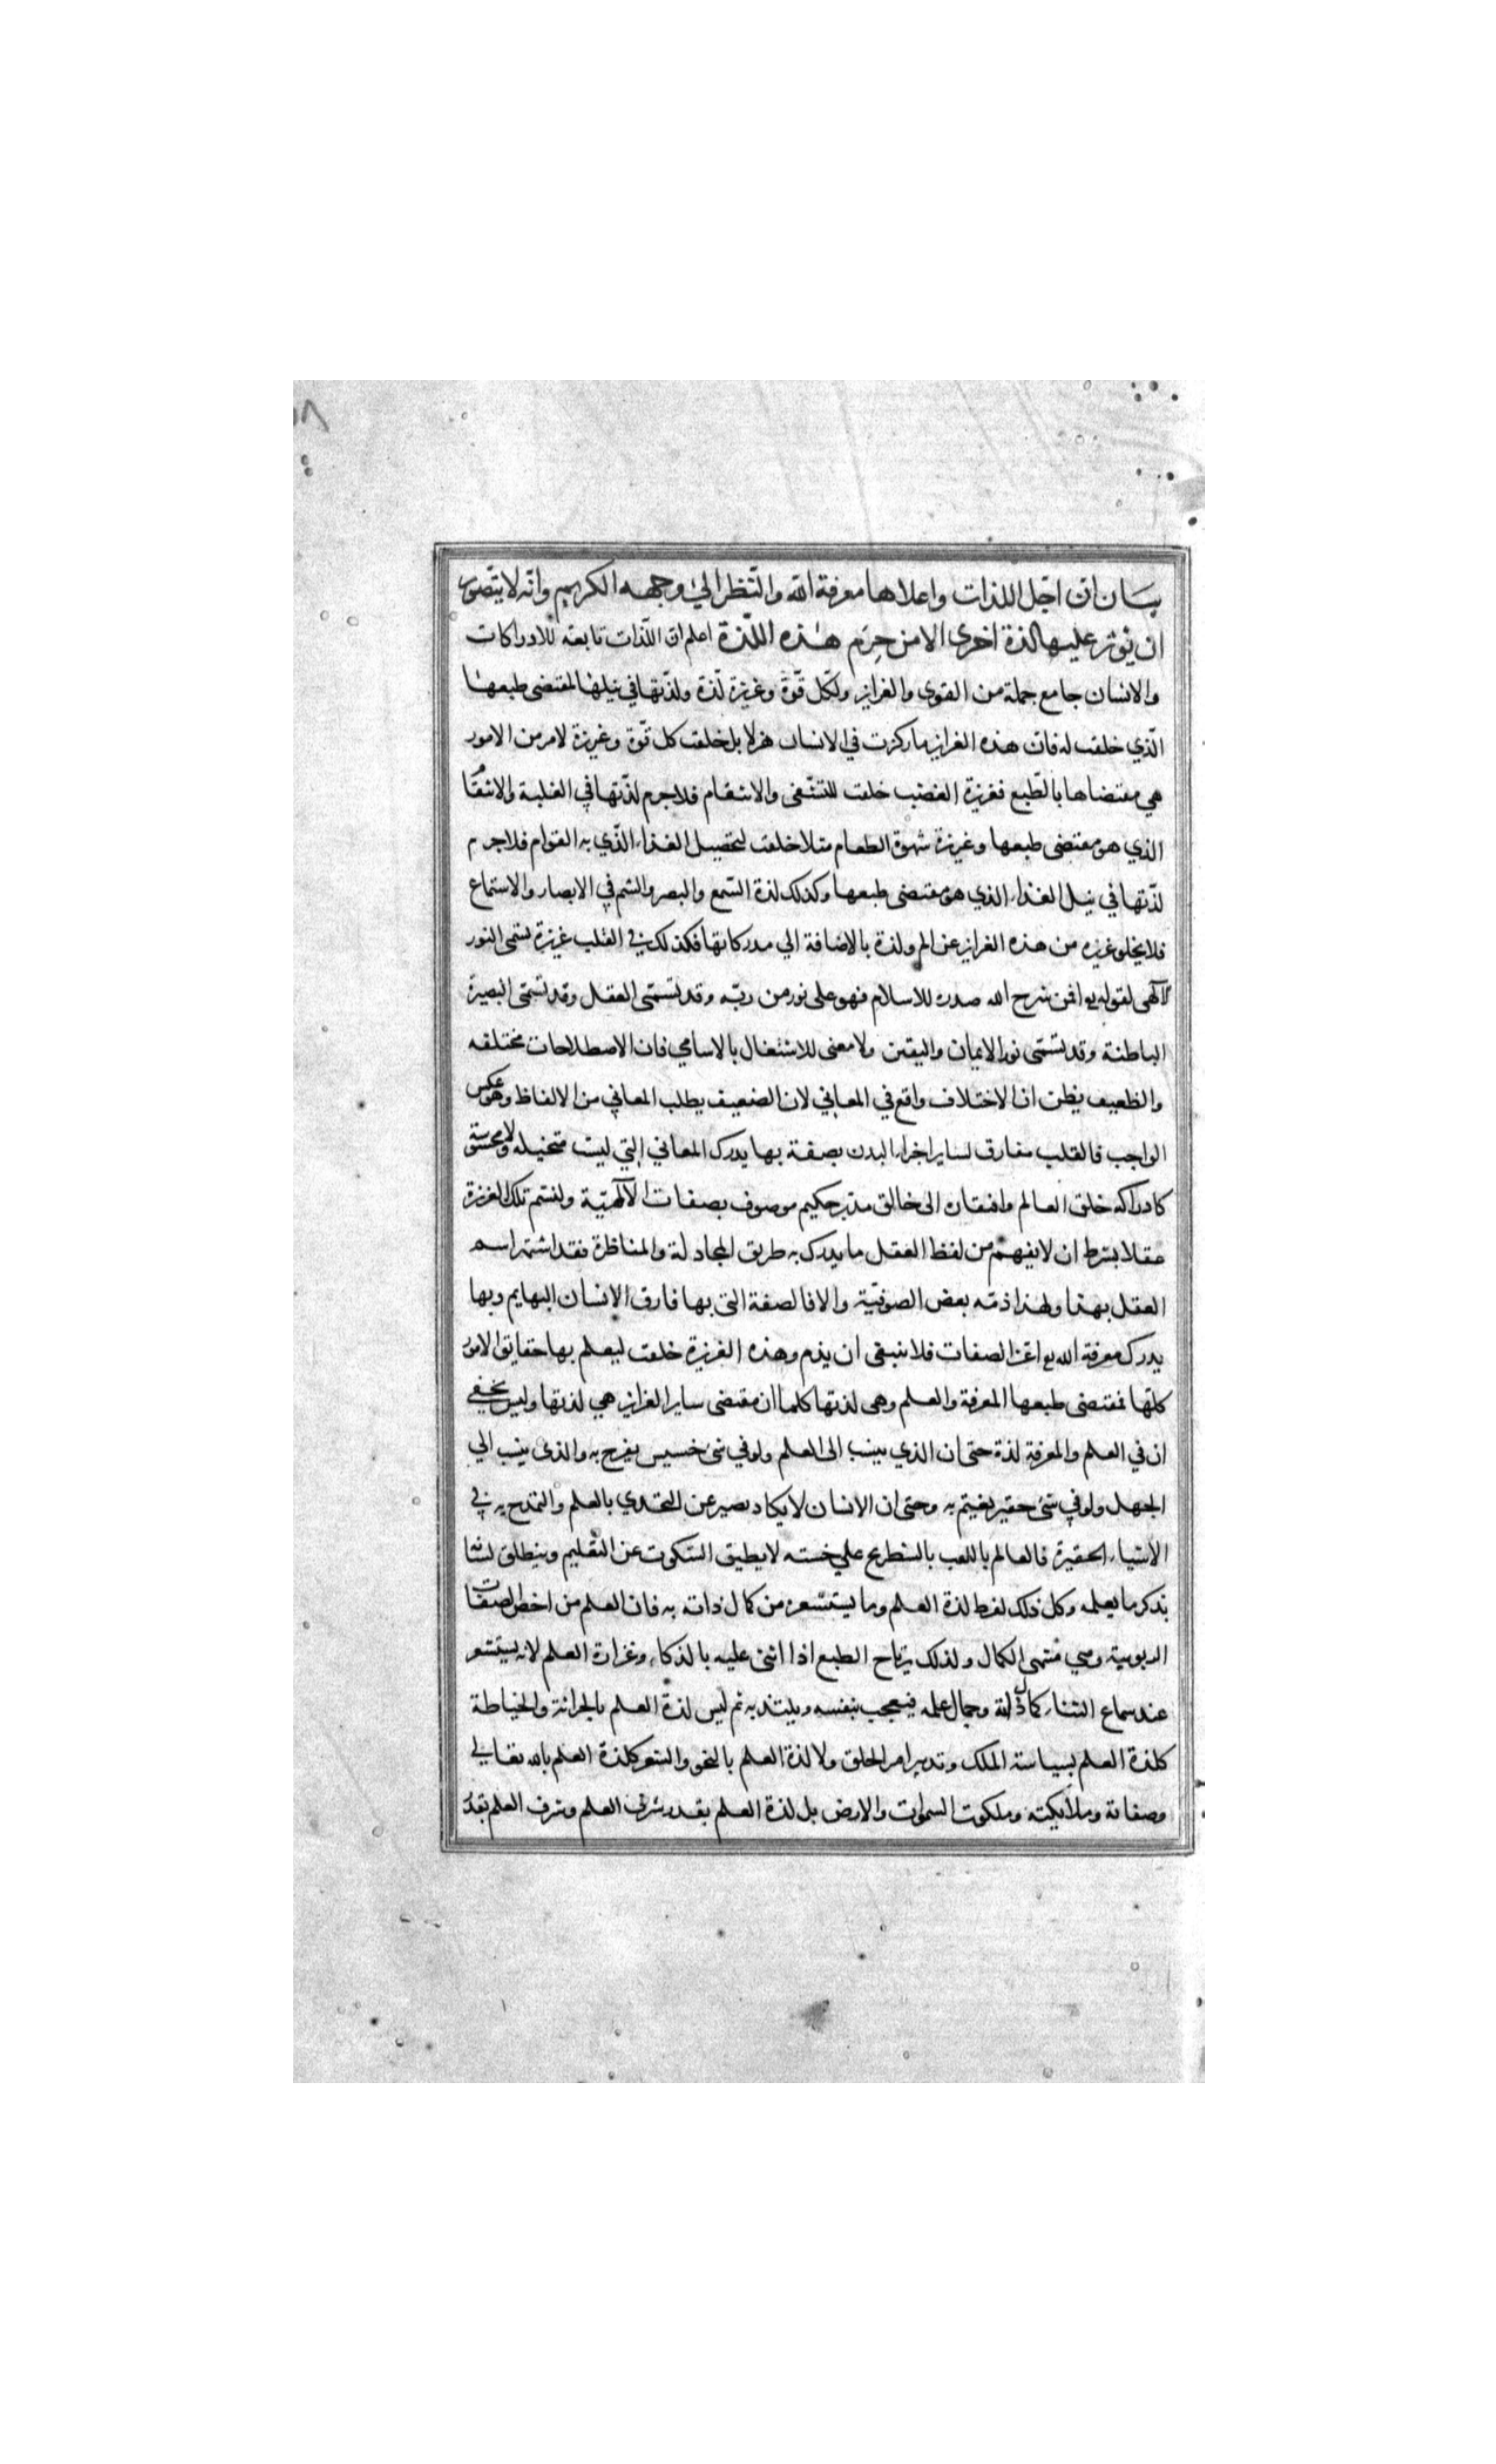 ٨
بيان ان اجّل اللذات واعلاها معرفة الله والنّظر الى وجهه الكريم وانّه لا يتّصور
ان يؤثر عليها لذة اخرى الا من حرم هذه اللّذة اعلم ان اللّذات تابعة للادراكات
والانسان جامع جملة من القوى والغرايز ولكّل قوّة وغريزة لذّة ولذّتها في نيلها لمقتضى طبعها
الّذي خلقت له فان هذه الغرايز ما ركزت في الانسان هزلا بل خلقت كل قوّة وغريزة لامر من الامور
هي مقتضاها بالّطبع فغريزة الغضب خلقت للتشفى والانتقام فلاجرم لذّتها في الغلبة والانتقام
الذي هو مقتضى طبعها وغريزة شهوة الطعام مثلا خلقت لتحصيل الغذاء الّذي به القوام فلاجرم
لذّتها في نيل الغذاء الذي هو مقتضى طبعها وكذلك لذة السّمع والبصر والشم في الابصار والاستماع
فلا يخلو غريزه من هذه الغرايز عن الم ولذة بالاضافة الي مدركاتها فكذلك في القلب غريزة تسّمى النور
الالهى لقوله تع افمن شرح الله صدره للاسلام فهو على نور من ربّه وقد تسمّى العقل وقد تسمّى البصيرة
الباطنة وقد تسمّى نور الايمان واليقين ولا معنى للاشتغال بالاسامي فان الاصطلاحات مختلفه
والظعيف يظن ان الاختلاف واقع في المعاني لان الضعيف يطلب المعاني من الالفاظ وهو عكس
الواجب فالقلب مفارق لساير اجزاء البدن بصفة بها يدرك المعاني التي ليست متخيله ولا محسوسة
كادراكه خلق العالم وافتقاره الى خالق مدبّر حكيم موصوف بصفات الالهيّة ولنسّم تلك الغريزة
عقلا بشرط ان لا يفهم من لفظ العقل ما يدرك به طريق المجادلة والمناظرة فقد اشتهر اسم
العقل بهذا ولهذا ذمّه بعض الصوفيّة والا فالصفة التى بها فارق الانسان البهايم وبها
يدرك معرفة الله تع اعز الصفات فلا ينبغى ان يذم وهذه الغريزة خلقت ليعلم بها حقايق الامور
كلّها فمقتضى طبعها المعرفة والعلم وهى لذتها كلما ان مقتضى ساير الغرايز هي لذتها وليس يخفي
ان في العلم والمعرفة لذة حتى ان الذي ينسب الى العلم ولو في شئ خسيس يفرح به والذى ينسب الي
الجهل ولو في شئ حقير يغيتم به وحتى ان الانسان لا يكاد يصبر عن التحدي بالعلم والتمدح به في
الاشياء الحقيرة فالعالم باللعب بالشطرنج على خسته لا يطيق السّكوت عن التعليم وينطلق لسانه
بذكر ما يعلمه وكل ذلك لفرط لذة العلم وما يستشعره من كمال ذاته به فان العلم من اخص الصفات
الربوبية وهي منتهى الكمال ولذلك يرتاح الطبع اذا اثنى عليه بالذكاء وغزارة العلم لانه يستشعر
عند سماع الثناء كمال ذاته وجمال علمه فيعجب بنفسه ويلتذ به ثم ليس لذة العلم بالحراثة والخياطة
كلذة العلم بسياسة الملك وتدبير امر الخلق ولا لذة العلم بالنحو والشعر كلذة العلم بالله تعالي
وصفاته وملائكته وملكوت السموات والارض بل لذة العلم بقدر شرف العلم وشرف العلم بقدر